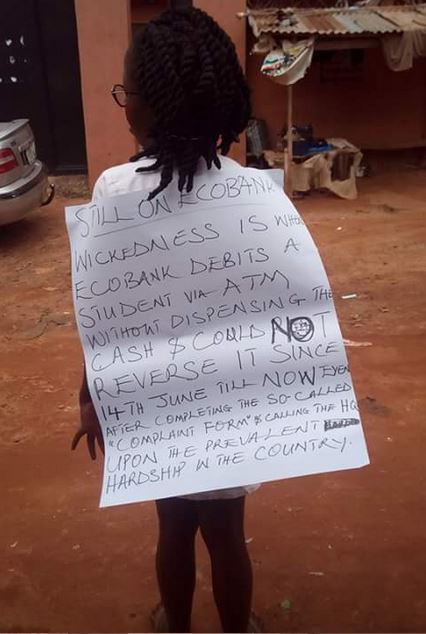 STILL ON ECOBANK
WICKEDNESS IS WHEN
ECOBANK DEBITS A
STUDENT VIA ATM
WITHOUT DISPENSING THE
CASH & COULD NOT
REVERSE IT SINCE
14TH JUNE TILL NOW EVEN
AFTER COMPLETING THE SO-CALLED
"COMPLAINT FORM" & CALLING THE HQ
UPON THE PREVALENT
HARDSHIP IN THE COUNTRY.